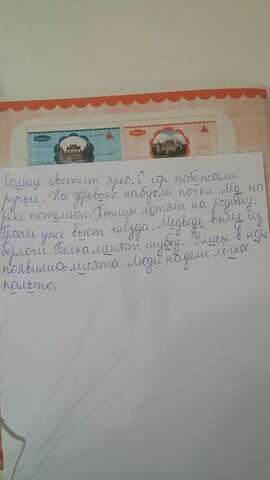 Солнце светит ярко. С гор побежали
ручьи. На деревьях набухли почки. Лёд на
реке потемнел. Птицы летят на родину.
Грачи уже вьют гнёзда. Медведь вылез из
берлоги. Белка меняет шубку. У лисы в норе
появились лисята. Люди надели легкое
пальто.